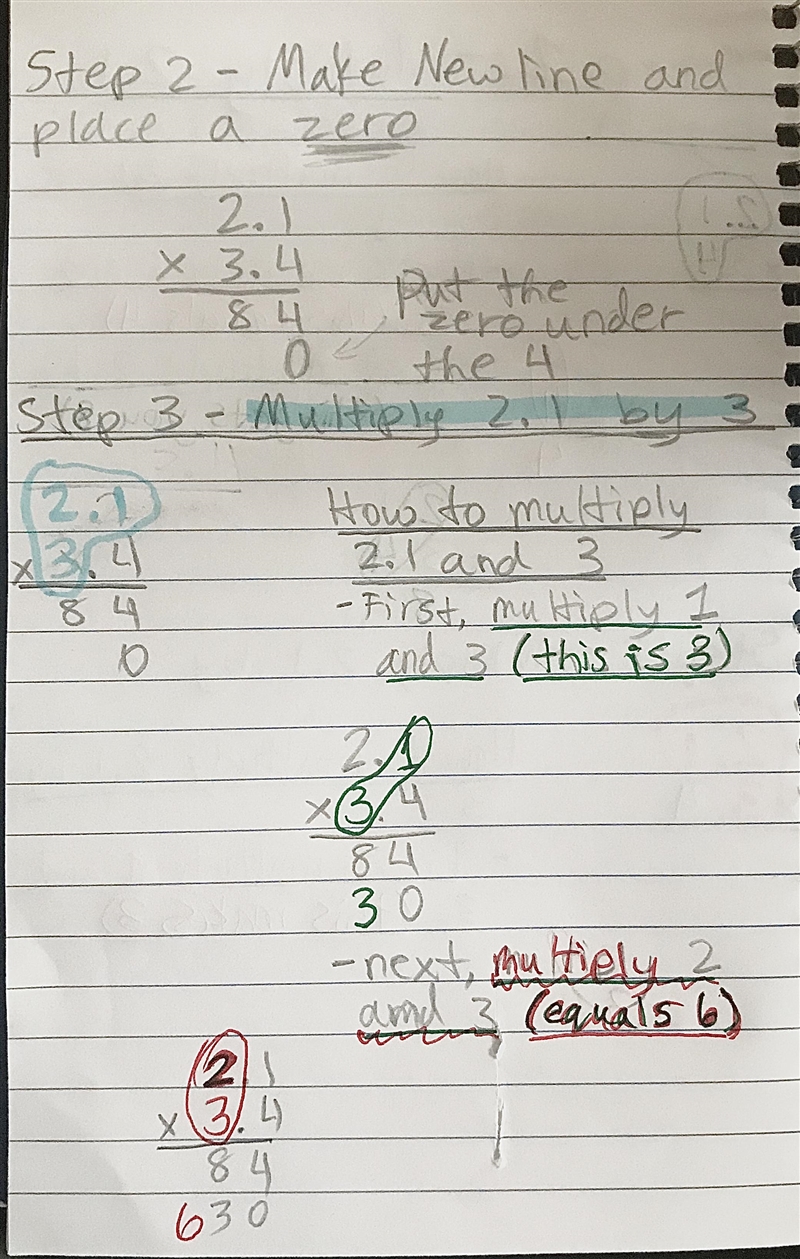 Step 2 - Make New line and
place a zero
2.1
x 3.4
8 4
0
Put the
zero under
the 4
Step 3 - Multiply 2.1 by 3
2.1
x 3.4
8 4
0
How to multiply
2.1 and 3
- First, multiply 1
and 3 (this is 3)
2.1
x 3.4
8 4
3 0
- next, multiply 2
and 3 (equals 6)
2 1
x 3.4
8 4
6 3 0